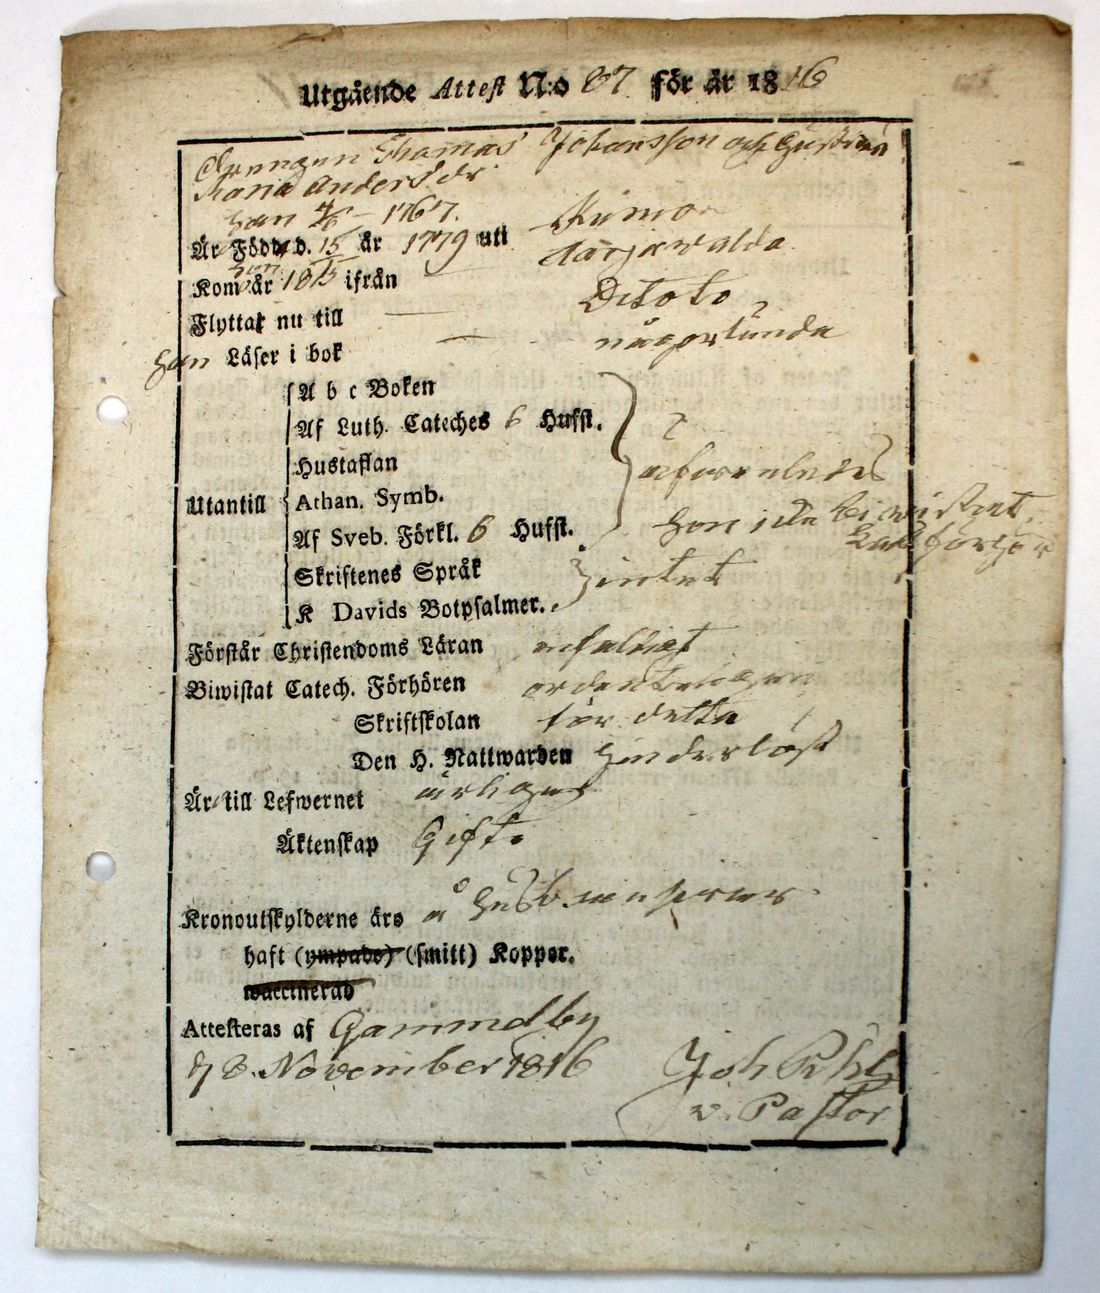 Utgående Attest N:o 87 för år 1816
Drengen Thomas Johansson och Hustrun
Maria Andersdr
han 4/6 1767.
Är Född d. 15 år 1779 uti Kumo
Kom år 1815 ifrån Harjawalda
Flyttar nu till Ditoto
han Läser i bok någorlunda
A b c Boken
Af Luth. Cateches 6 Hufst.
Hustaflan
Utantill Athan. Symb.
Af Sveb. Förkl. 6 Hufst.
hon icke biwistat
Skriftenes Språk intet
K Davids Botpsalmer.
Förstår Christendoms Läran enfaldigt
Biwistat Catech. Förhören ordenteligen
Skriftskolan för detta
Den H. Nattwarden hinderlöst
Är till Lefwernet ärliga
Äktenskap Gifte
Kronoutskylderne äro å
haft (ympade) (smitt) Kopper.
waccinerad
Attesteras af Gammelby
d 8. November 1816 Joh
v. Pastor